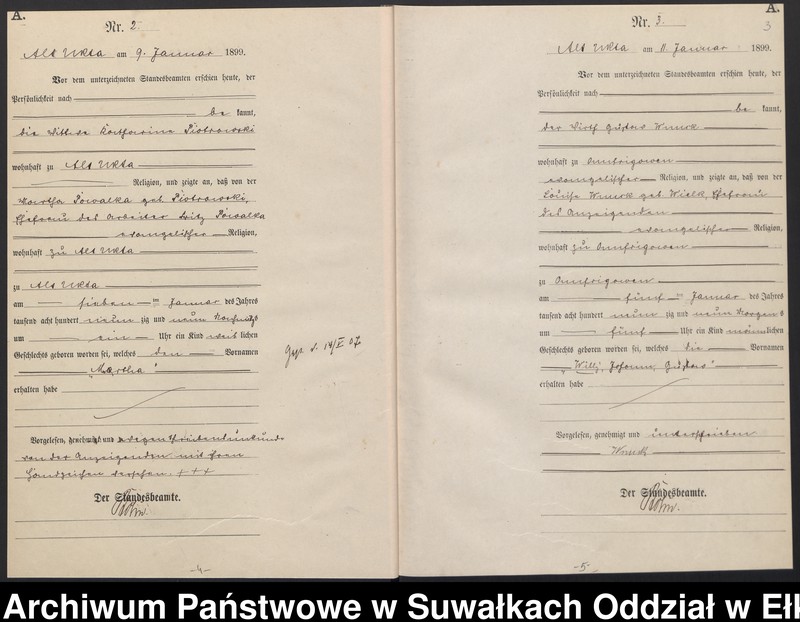 A.
Nr. 2
Alt Ukta am 9. Januar 1899.
Vor dem unterzeichneten Standesbeamten erschien heute, der
Persönlichkeit nach
be kannt,
die Wittwe Katharina Piotrowski
wohnhaft zu Alt Ukta
Religion, und zeigte an, daß von der
Martha Powalka geb. Piotrowski,
Ehefrau des Arbeiter Fritz Powalka
evangelischer Religion,
wohnhaft zu Alt Ukta
zu Alt Ukta
am sieben ten Januar des Jahres
tausend acht hundert neun zig und neun
um ein Uhr ein Kind weib lichen
Geschlechts geboren worden sei, welches den Vornamen
"Martha"
erhalten habe
Vorgelesen, genehmigt und wegen Schreibensunkunde
von der Anzeigenden mit ihren
Handzeichen versehen. +++
Der Standesbeamte.
-4-
A.
3
Nr. 3.
Alt Ukta am Januar 1899.
Vor dem unterzeichneten Standesbeamten erschien heute, der
Persönlichkeit nach
be kannt,
der Wirth Gustav
wohnhaft zu Onufrigowen
evangelischer Religion, und zeigte an, daß von der
Louise geb. Ehefrau
des Anzeigenden
evangelischer Religion,
wohnhaft zu Onufrigowen
zu Onufrigowen
am fünf ten Januar des Jahres
tausend acht hundert neun zig und neun Morgens
um fünf Uhr ein Kind männ lichen
Geschlechts geboren worden sei, welches die Vornamen
"Willy, Johann, Gustav"
erhalten habe
Vorgelesen, genehmigt und unterschrieben
Der Standesbeamte.
-5-
Archiwum Państwowe w Suwałkach Oddział w Ełk